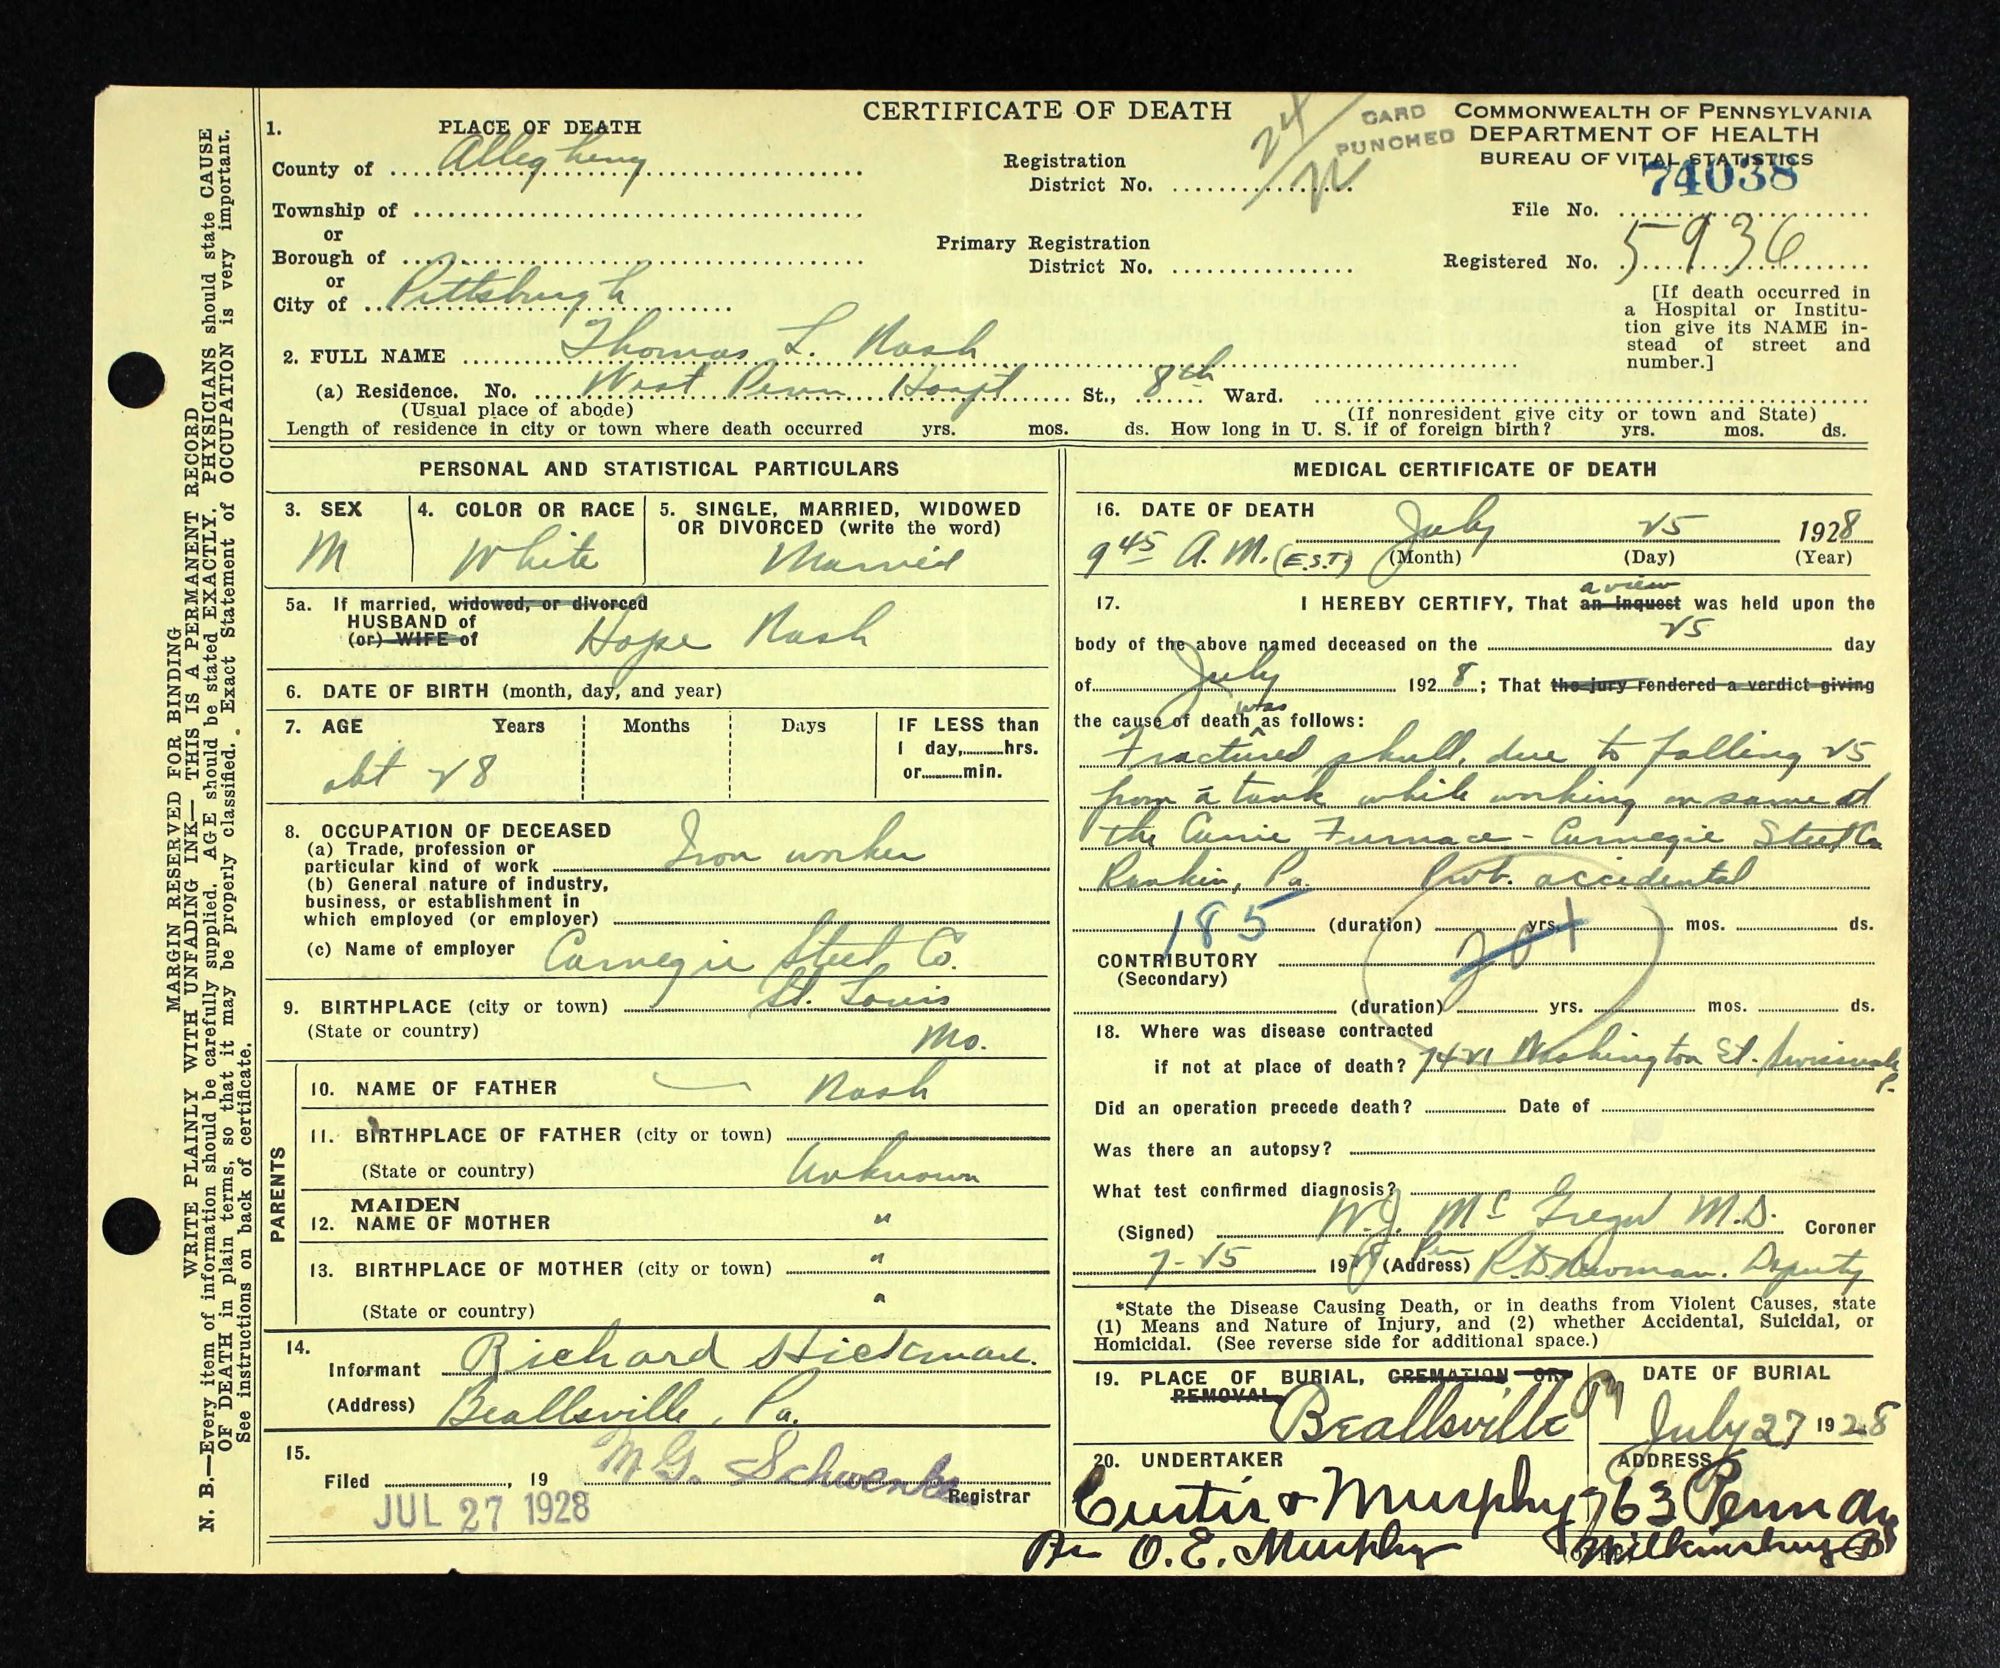 CERTIFICATE OF DEATH
COMMONWEALTH OF PENNSYLVANIA
DEPARTMENT OF HEALTH
BUREAU OF VITAL STATISTICS
CARD
PUNCHED
74038
File No.
Registered No. 5936
[If death occurred in
a Hospital or Institu-
tion give its NAME in-
stead of street and
number.]
1. PLACE OF DEATH
County of Allegheny
Township of
or
Borough of
or
City of Pittsburgh
Registration
District No.
24
Primary Registration
District No.
2. FULL NAME Thomas L. Nash
(a) Residence. No. West Penn Hospt St., 8th Ward.
(Usual place of abode) (If nonresident give city or town and State)
Length of residence in city or town where death occurred yrs. mos. ds. How long in U. S. if of foreign birth? yrs. mos. ds.
PERSONAL AND STATISTICAL PARTICULARS
3. SEX
M
4. COLOR OR RACE
White
5. SINGLE, MARRIED, WIDOWED
OR DIVORCED (write the word)
Married
5a. If married, widowed, or divorced
HUSBAND of
(or) WIFE of
Hope Nash
6. DATE OF BIRTH (month, day, and year)
7. AGE Years Months Days
abt 28
IF LESS than
1 day,........hrs.
or........min.
8. OCCUPATION OF DECEASED
(a) Trade, profession or
particular kind of work Iron worker
(b) General nature of industry,
business, or establishment in
which employed (or employer)
(c) Name of employer Carnegie Steel Co.
9. BIRTHPLACE (city or town) St. Louis
(State or country) Mo.
PARENTS
10. NAME OF FATHER Nash
11. BIRTHPLACE OF FATHER (city or town)
(State or country) Unknown
MAIDEN
12. NAME OF MOTHER "
13. BIRTHPLACE OF MOTHER (city or town) "
(State or country) "
14.
Informant Richard Hickman.
(Address) Beallsville, Pa.
15.
Filed , 19
JUL 27 1928
Registrar
MEDICAL CERTIFICATE OF DEATH
16. DATE OF DEATH July 25 1928
9 45 A.M. (E.S.T) (Month) (Day) (Year)
a view
17. I HEREBY CERTIFY, That an inquest was held upon the
body of the above named deceased on the 25 day
of July 1928; That the jury rendered a verdict giving
the cause of death was as follows:
Fractured skull, due to falling 25
from a tank while working on same at
the Carrie Furnace - Carnegie Steel Co
Rankin, Pa. Prob. accidental
185
(duration) yrs. mos. ds.
201
CONTRIBUTORY
(Secondary)
(duration) yrs. mos. ds.
18. Where was disease contracted
if not at place of death? 7421 Washington St. Swissvale
P.
Did an operation precede death? Date of
Was there an autopsy?
What test confirmed diagnosis?
(Signed) W.J. McGregor M.D. Coroner
7-25 1928 (Address) Per Deputy
*State the Disease Causing Death, or in deaths from Violent Causes, state
(1) Means and Nature of Injury, and (2) whether Accidental, Suicidal, or
Homicidal. (See reverse side for additional space.)
19. PLACE OF BURIAL, CREMATION, OR
REMOVAL
Beallsville Pa
DATE OF BURIAL
July 27 1928
20. UNDERTAKER
Curtis & Murphy
Per O.E. Murphy
ADDRESS
763 Penn Av
Wilkinsburg Pa
MARGIN RESERVED FOR BINDING
WRITE PLAINLY WITH UNFADING INK— THIS IS A PERMANENT RECORD
N. B.—Every item of information should be carefully supplied. AGE should be stated EXACTLY. PHYSICIANS should state CAUSE
OF DEATH in plain terms, so that it may be properly classified. Exact Statement of OCCUPATION is very important.
See instructions on back of certificate.